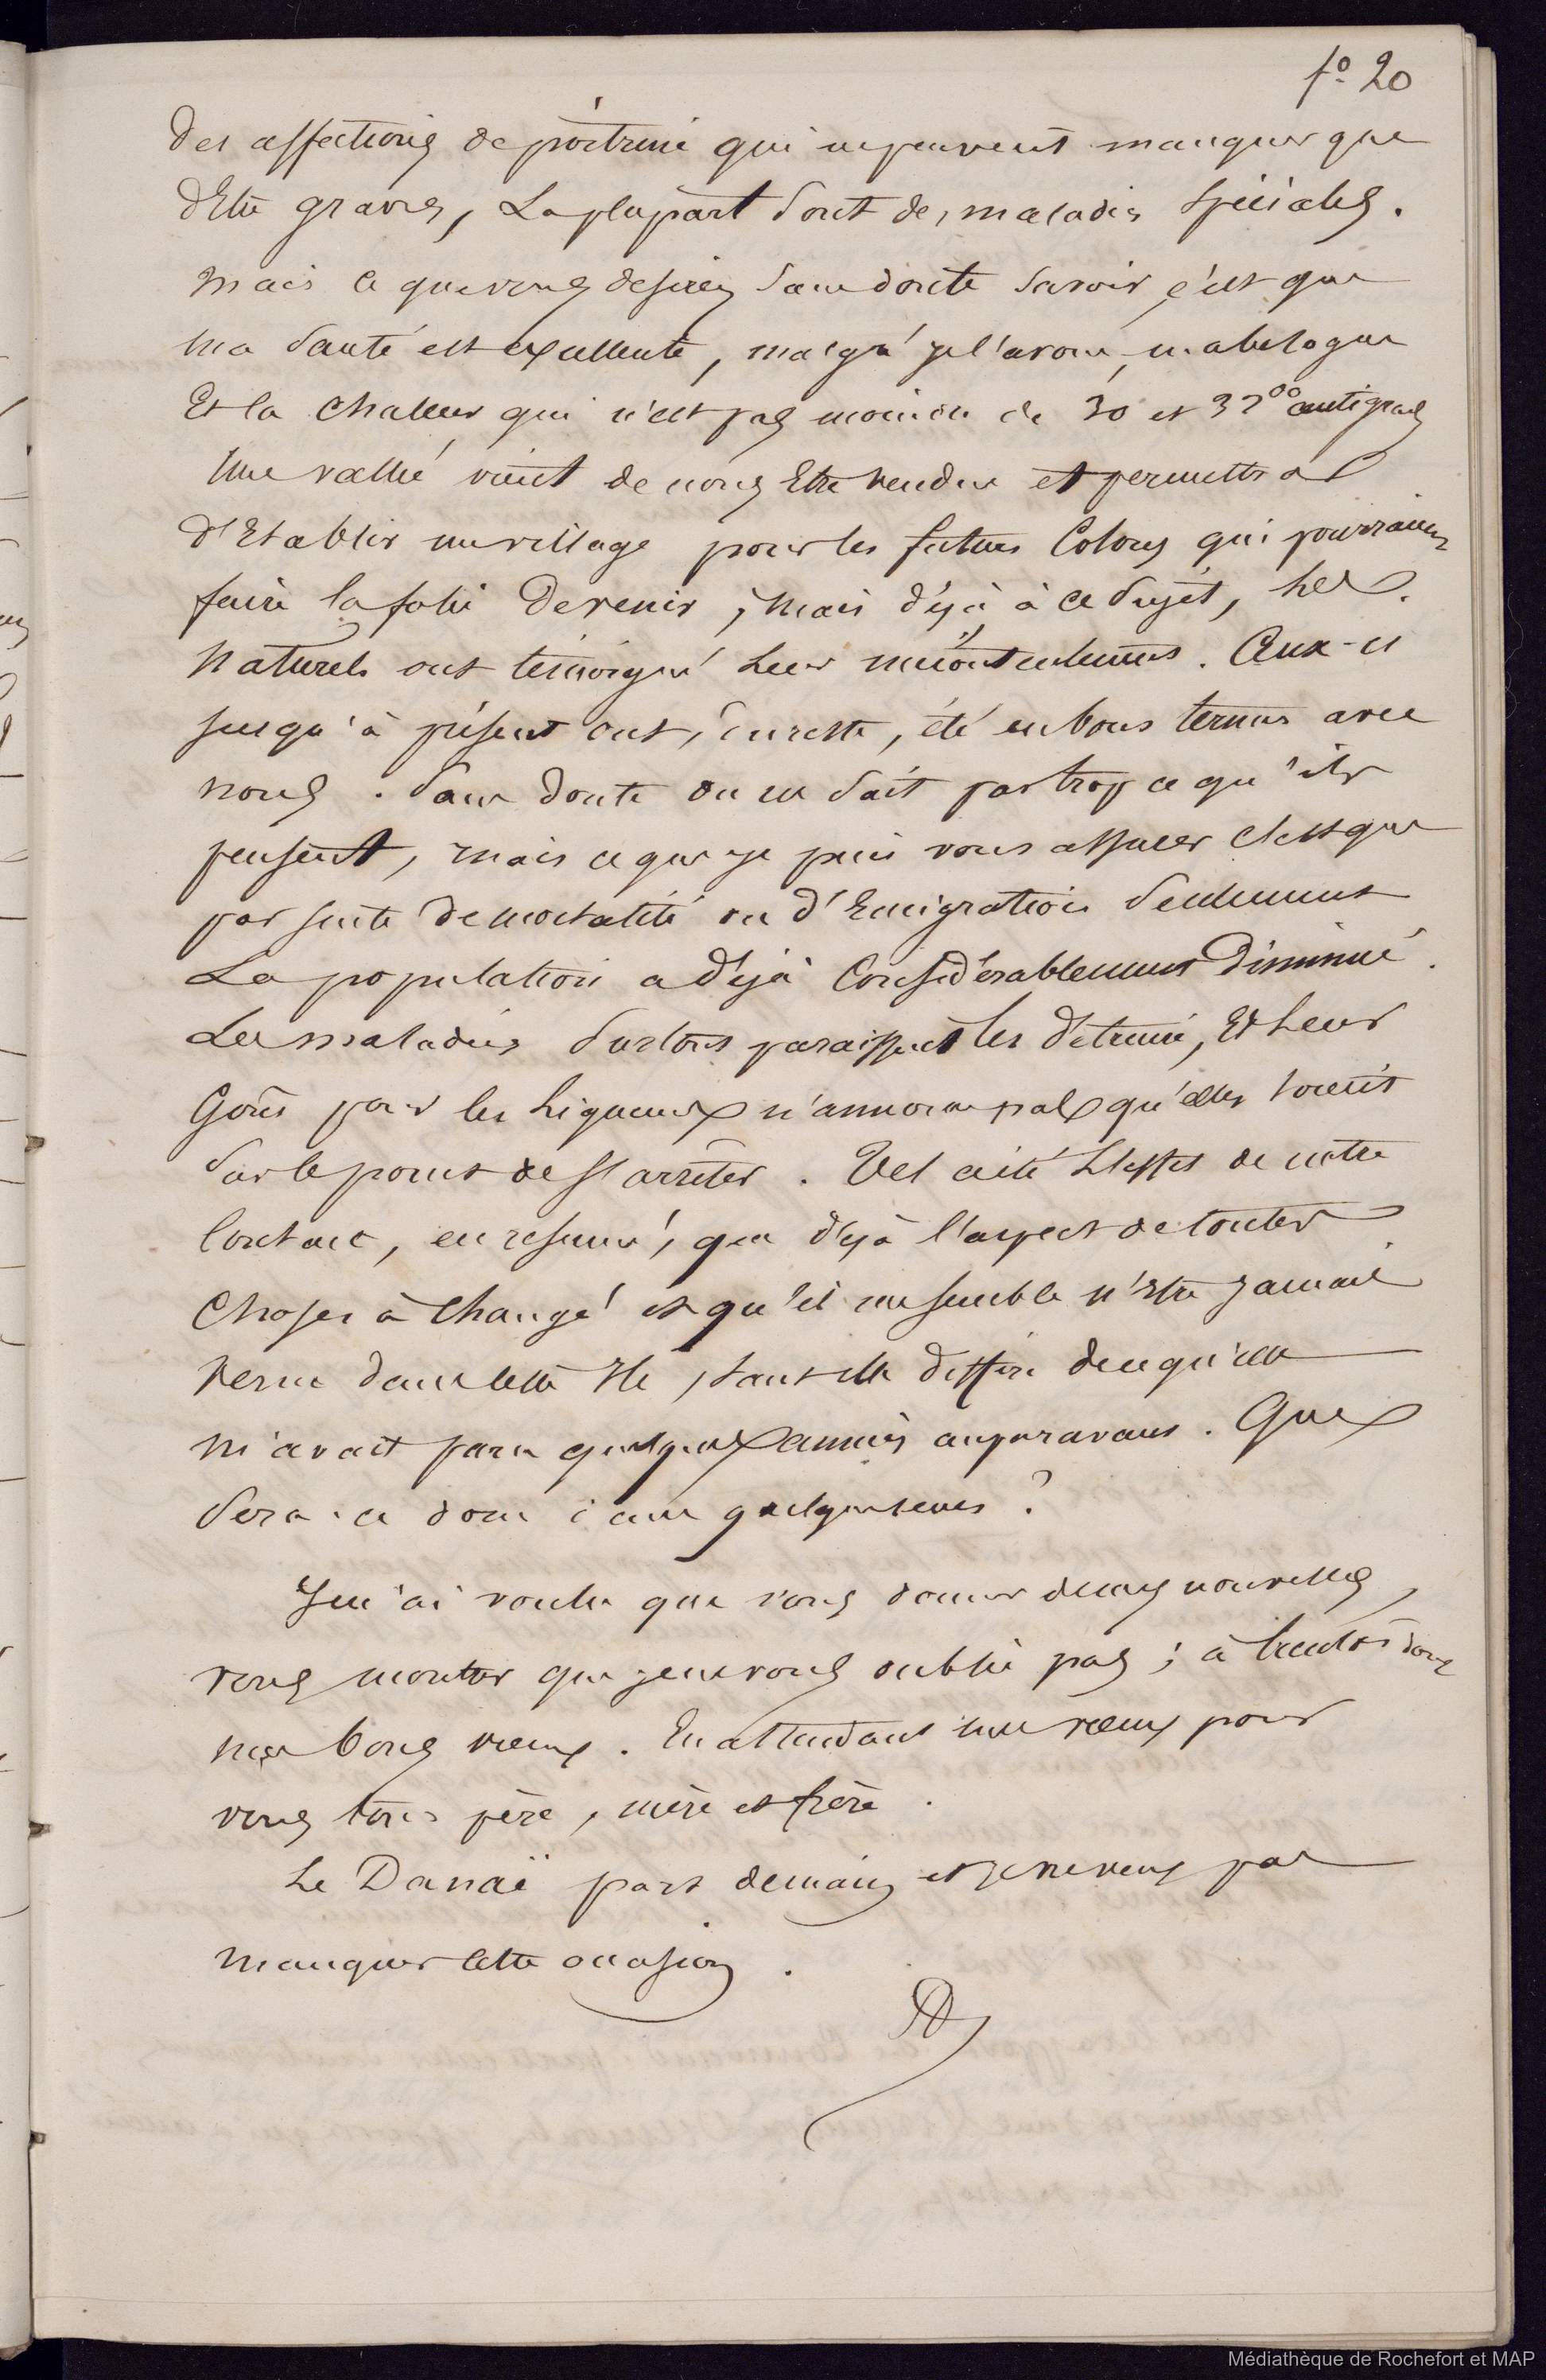 fo 20
des affections de poitrine qui ne peuvent manquer que
d'Etre graves, La plupart sont des maladies spéciales.
Mais ce que vous desirez sans doute savoir c'est que
ma santé est excellente, malgré je l'avoue,
Et la chaleur qui n'est pas moindre de 30 et 32°° centigrades
Une vallée vient de nous Etre vendue et permettra
d'Etablir un village pour les futurs Colons qui pourraient
faire la folie de venir ; Mais déjà à ce sujet, les
Naturels ont témoigné Leur mécontentement. Ceux-ci
jusqu'à présent ont, du reste, été en bons termes avec
nous. Sans doute on ne sait pas trop ce qu'ils
pensent, mais ce que je puis vous assurer c'est que
par suite de mortalité ou d'Emigration seulement
La population a déjà Considérablement Diminué.
Les maladies surtout paraissent les détruire, Et Leur
Goût pour les Liqueurs n'annonce pas qu'elles soient
sur le point de s'arrêter. Tel a été L'effet de notre
Contact, en resumé, que déjà l'aspect de toutes
Choses à changé et qu'il me semble n'être jamais
venu dans cette Ile, tant elle diffère de ce qu'elle
m'avait paru quelques années auparavant. Que
sera-ce donc dans quelque temps ?
Je n'ai voulu que vous donner de mes nouvelles,
vous montrer que je ne vous oublie pas ; à bientôt donc
mes bons vieux. En attendant mille vœux pour
vous tous père, mère et frère.
Le Danaë part demain et je ne veux pas
manquer cette occasion.
Médiathèque de Rochefort et MAP